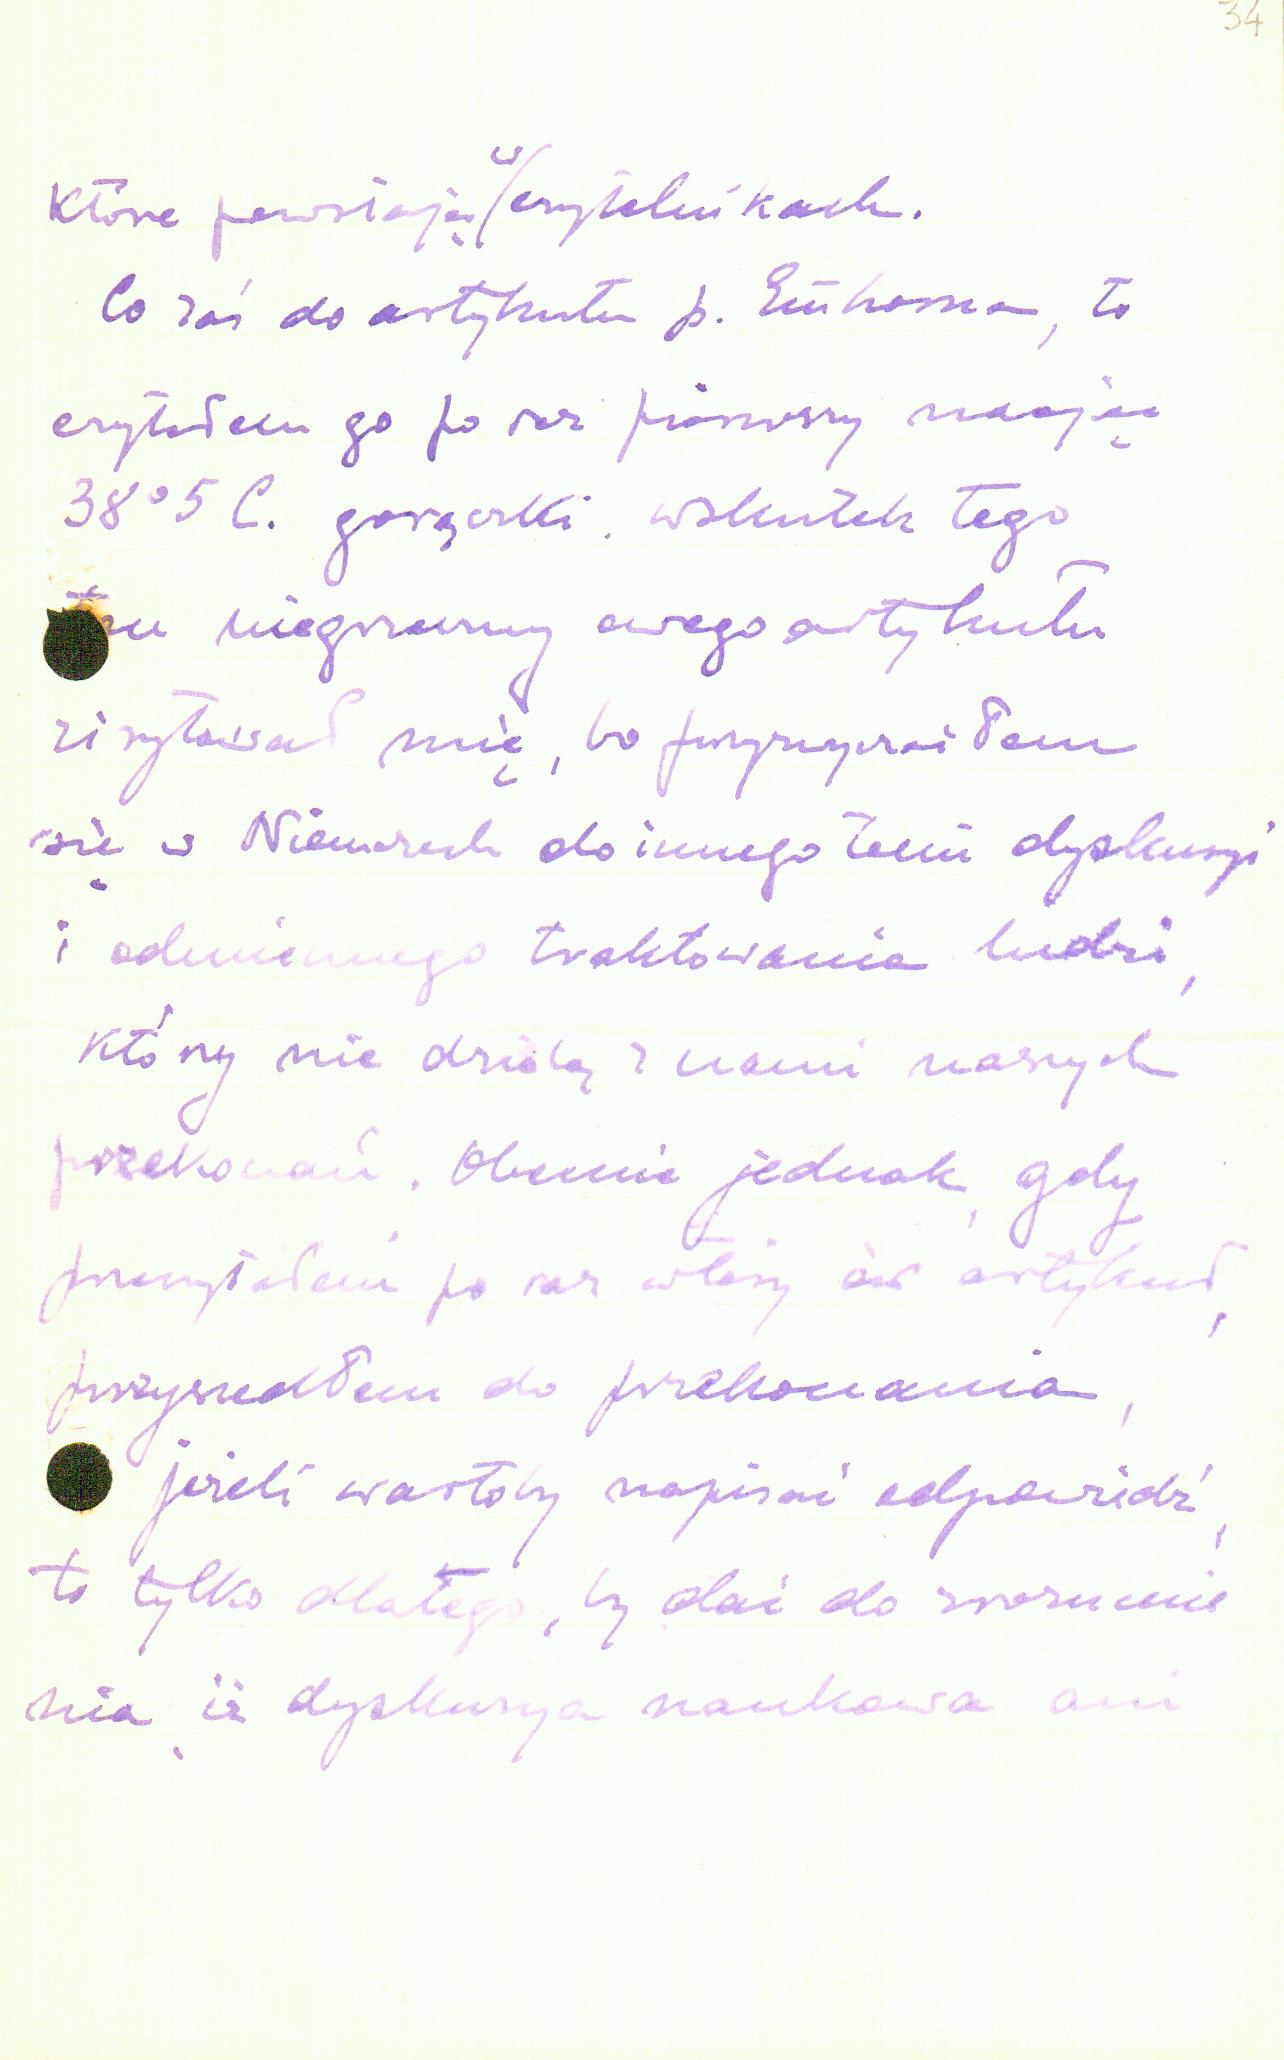 34
które powstają w czytelnikach.
Co zaś do artykułu p. to
czytałem go po raz pierwszy mając
38°5 C. gorączki, wskutek tego
ton niegrzeczny owego artykułu
zirytował mię, bo przyzwyczaiłem
się w Niemczech do innego tonu dyskusyi
i odmiennego traktowania ludzi,
którzy nie dzielą z nami naszych
przekonań. Obecnie jednak, gdy
przeczytałem po raz wtóry ów artykuł,
przyszedłem do przekonania,
jeżeli wartoby napisać odpowiedź,
to tylko dlatego, by dać do zrozumie
nia, iż dyskusya naukowa ani